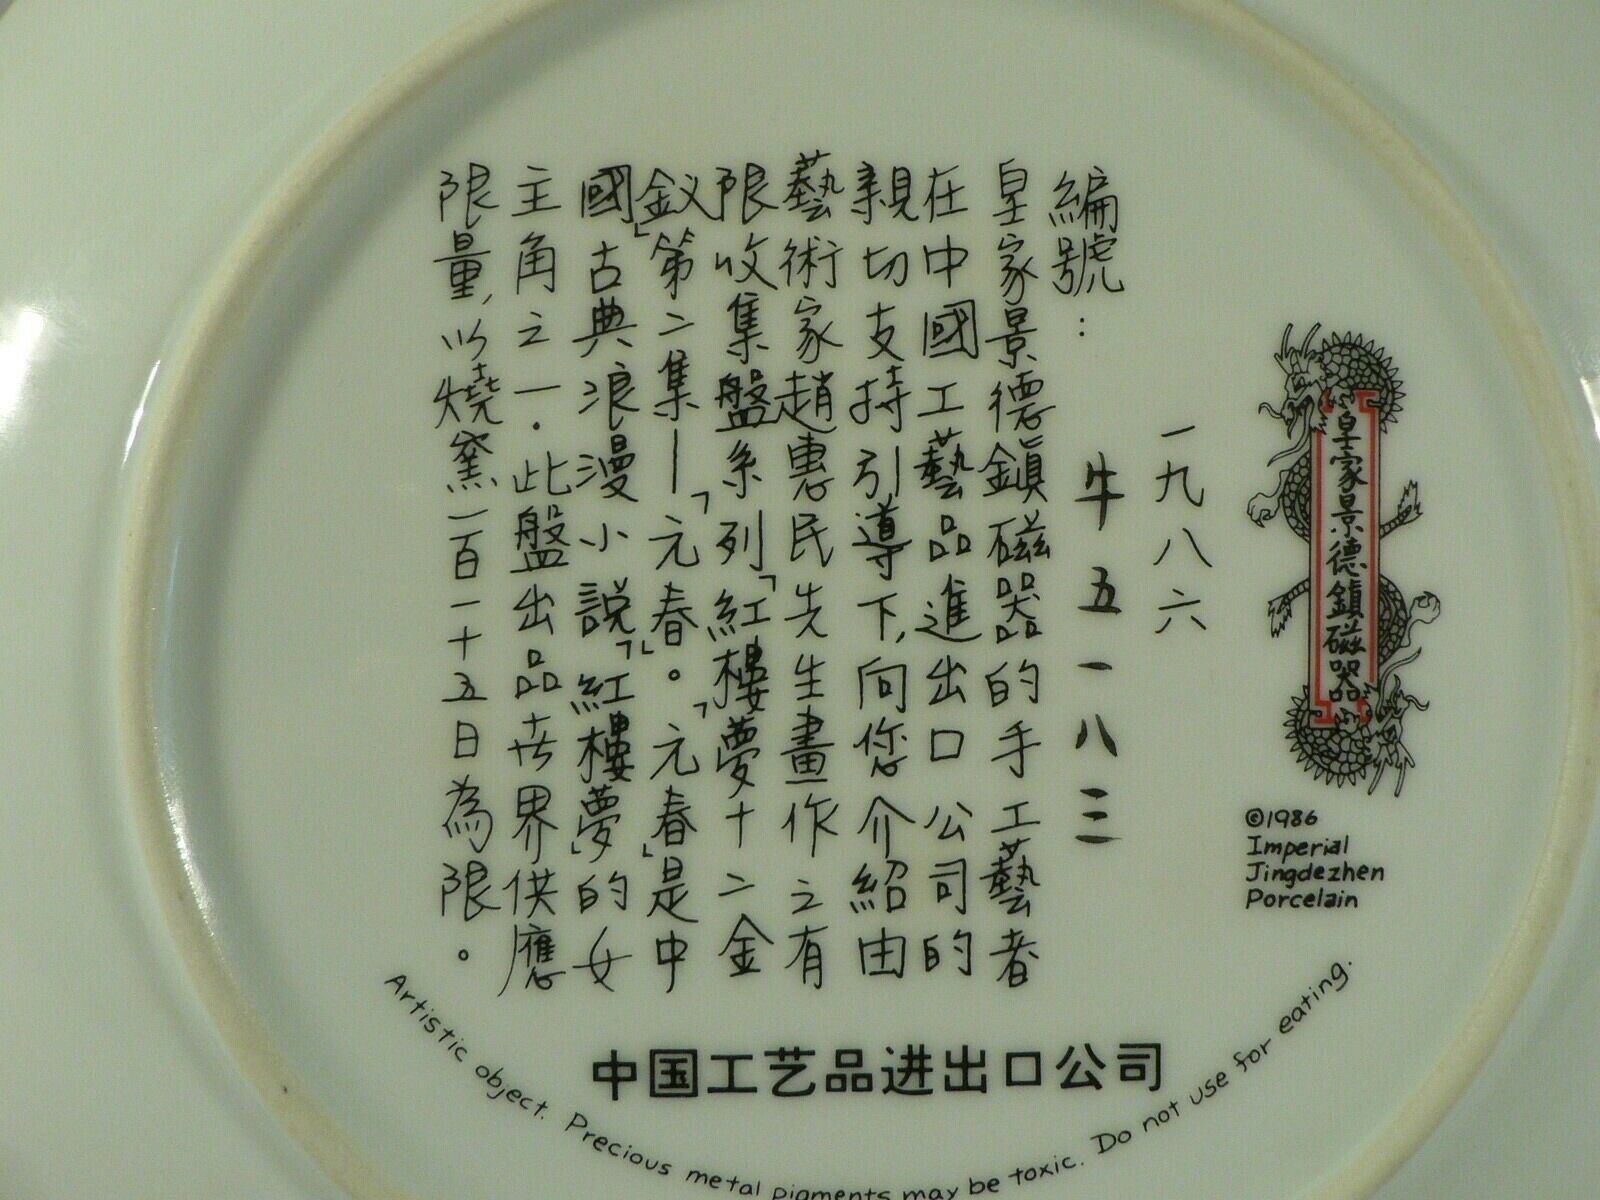 皇家景德鎮磁器
©1986
Imperial
Jingdezhen
Porcelain
一九八六
編號：
牛五一八三
皇家景德鎮磁器的手工藝者
在中國工藝品進出口公司的
親切支持引導下,向您介紹由
藝術家趙惠民先生畫作之有
限收集盤系列「紅樓夢十二金
釵」第二集—「元春」。「元春」是中
國古典浪漫小説「紅樓夢」的女
主角之一.此盤出品世界供應
限量,以燒窯一百一十五日為限。
中国工艺品进出口公司
Artistic object. Precious metal pigments may be toxic. Do not use for eating.